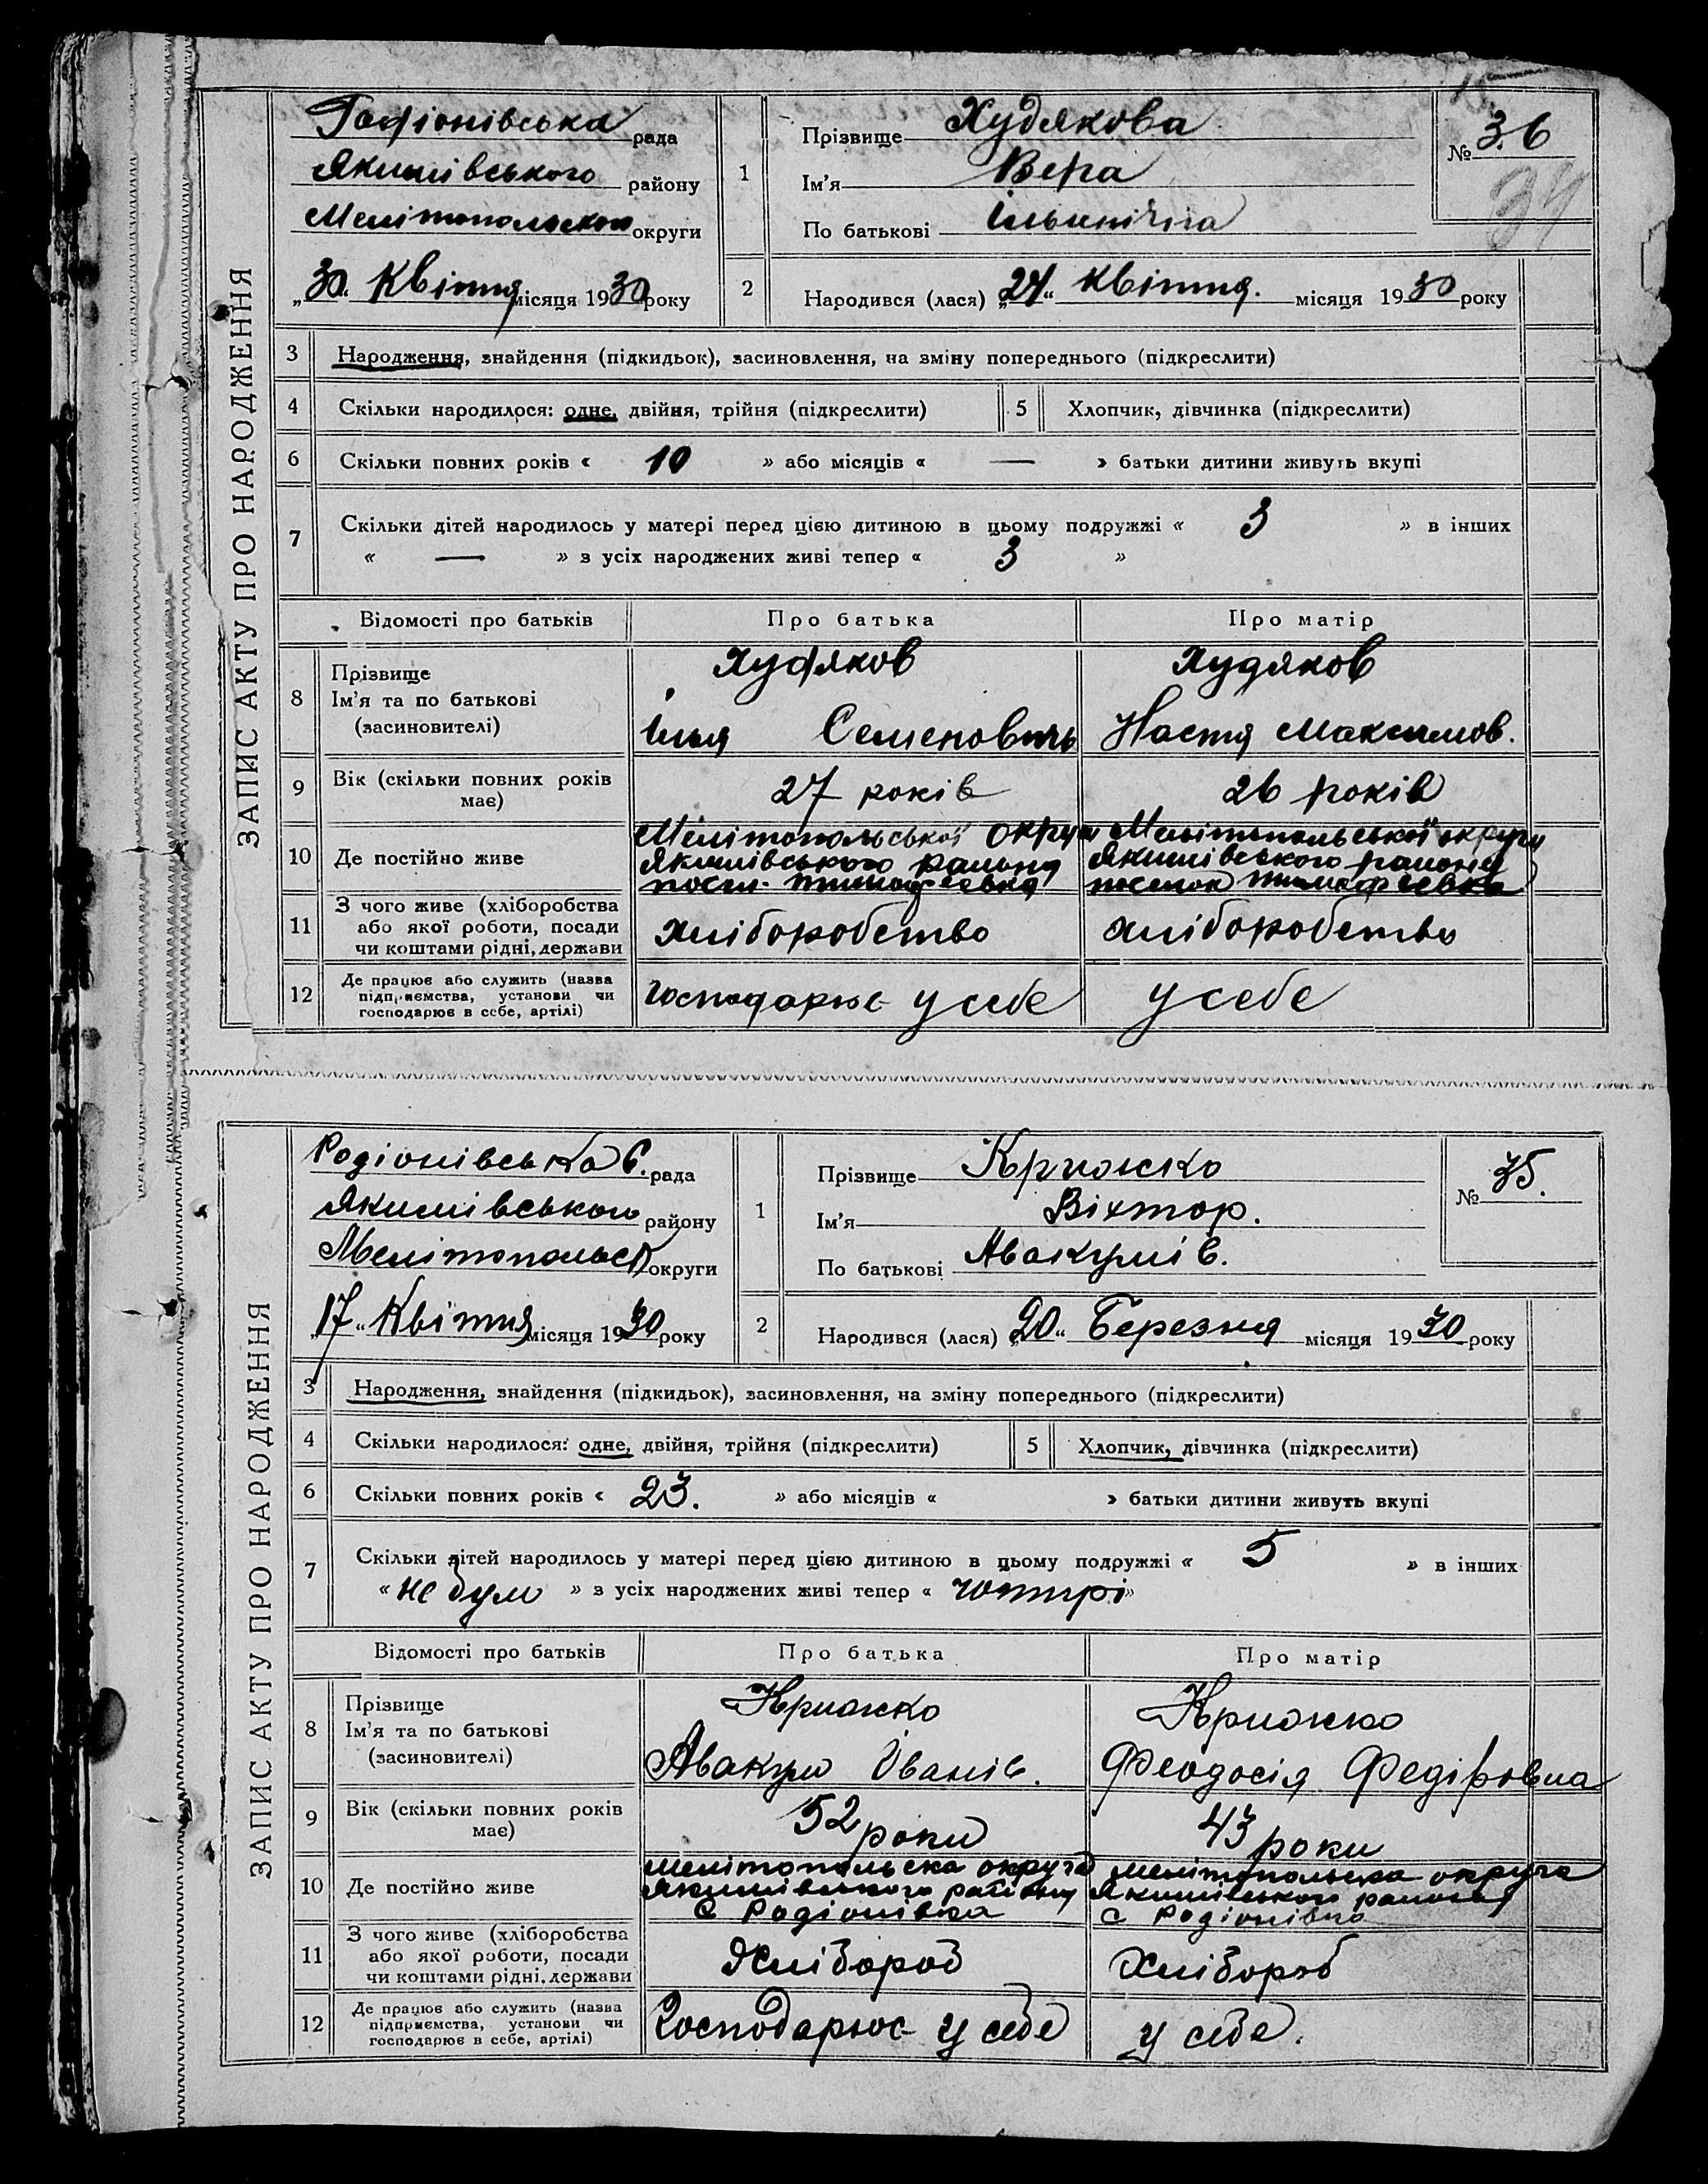 ЗАПИС АКТУ ПРО НАРОДЖЕННЯ
Радіонівська рада
Якимівського району
Мелітопольской округи
„30“ Квітня місяця 1930 року
1
Прізвище Худякова
Ім'я Вера
По батькові Ільинічна
№ 36
34
2
Народився (лася) „24“ Квітня. місяця 1930 року
3 Народження, знайдення (підкидьок), засиновлення, на зміну попереднього (підкреслити)
4 Скільки народилося: одне, двійня, трійня (підкреслити) 5 Хлопчик, дівчинка (підкреслити)
6 Скільки повних років « 10 » або місяців « — » батьки дитини живуть вкупі
7 Скільки дітей народилось у матері перед цією дитиною в цьому подружжі « 3 » в інших
« — » з усіх народжених живі тепер « 3 »
Відомості про батьків Про батька Про матір
8 Прізвище
Ім'я та по батькові
(засиновителі)
Худяков
Ілья Семеновичь
Худяков
Настя Максимов.
9 Вік (скільки повних років
має)
27 років
26 років
10 Де постійно живе
Мелітопольської округи
Якимівського району
посел. Тимофеевка
Мелітопольської округи
Якимівського району
поселок Тимофеевка
11 З чого живе (хліборобства
або якої роботи, посади
чи коштами рідні, держави
хліборобство
хліборобство
12 Де працює або служить (назва
підприємства, установи чи
господарює в себе, артілі)
господарює у себе
у себе
ЗАПИС АКТУ ПРО НАРОДЖЕННЯ
Родіонівська С. рада
Якимівського району
Мелітопольсь округи
„17“ Квітня місяця 1930 року
1
Прізвище Крижко
Ім'я Віктор.
По батькові Авакумів.
№ 35.
2
Народився (лася) „20“ Березня місяця 1930 року
3 Народження, знайдення (підкидьок), засиновлення, на зміну попереднього (підкреслити)
4 Скільки народилося: одне, двійня, трійня (підкреслити) 5 Хлопчик, дівчинка (підкреслити)
6 Скільки повних років « 23. » або місяців « » батьки дитини живуть вкупі
7 Скільки дітей народилось у матері перед цією дитиною в цьому подружжі « 5 » в інших
« не було » з усіх народжених живі тепер « чотирі »
Відомості про батьків Про батька Про матір
8 Прізвище
Ім'я та по батькові
(засиновителі)
Крижко
Авакум Іванів.
Крижко
Феодосія Федіровна
9 Вік (скільки повних років
має)
52 роки
43 роки
10 Де постійно живе
мелітопольська округа
Якимівського району
с Родіонівка
мелітопольська округа
Якимівського району
с Родіонівка
11 З чого живе (хліборобства
або якої роботи, посади
чи коштами рідні, держави
Хлібороб
Хлібороб
12 Де працює або служить (назва
підприємства, установи чи
господарює в себе, артілі)
Господарює у себе
у себе.